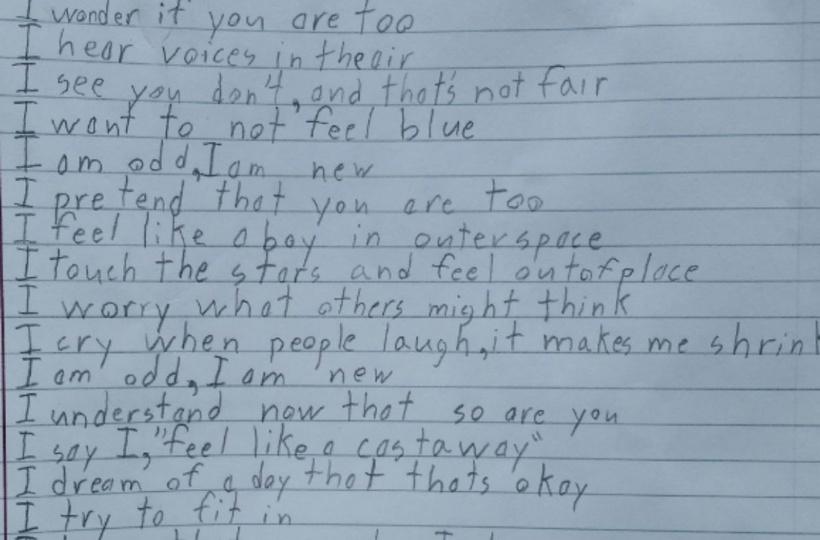 I wonder if you are too
I hear voices in theair
I see you don't, and that's not fair
I want to not feel blue
I am odd, I am new
I pretend that you are too
I feel like a boy in outerspace
I touch the stars and feel outofplace
I worry what others might think
I cry when people laugh, it makes me shrink
I am odd, I am new
I understand now that so are you
I say I, "feel like a castaway"
I dream of a day that thats okay
I try to fit in